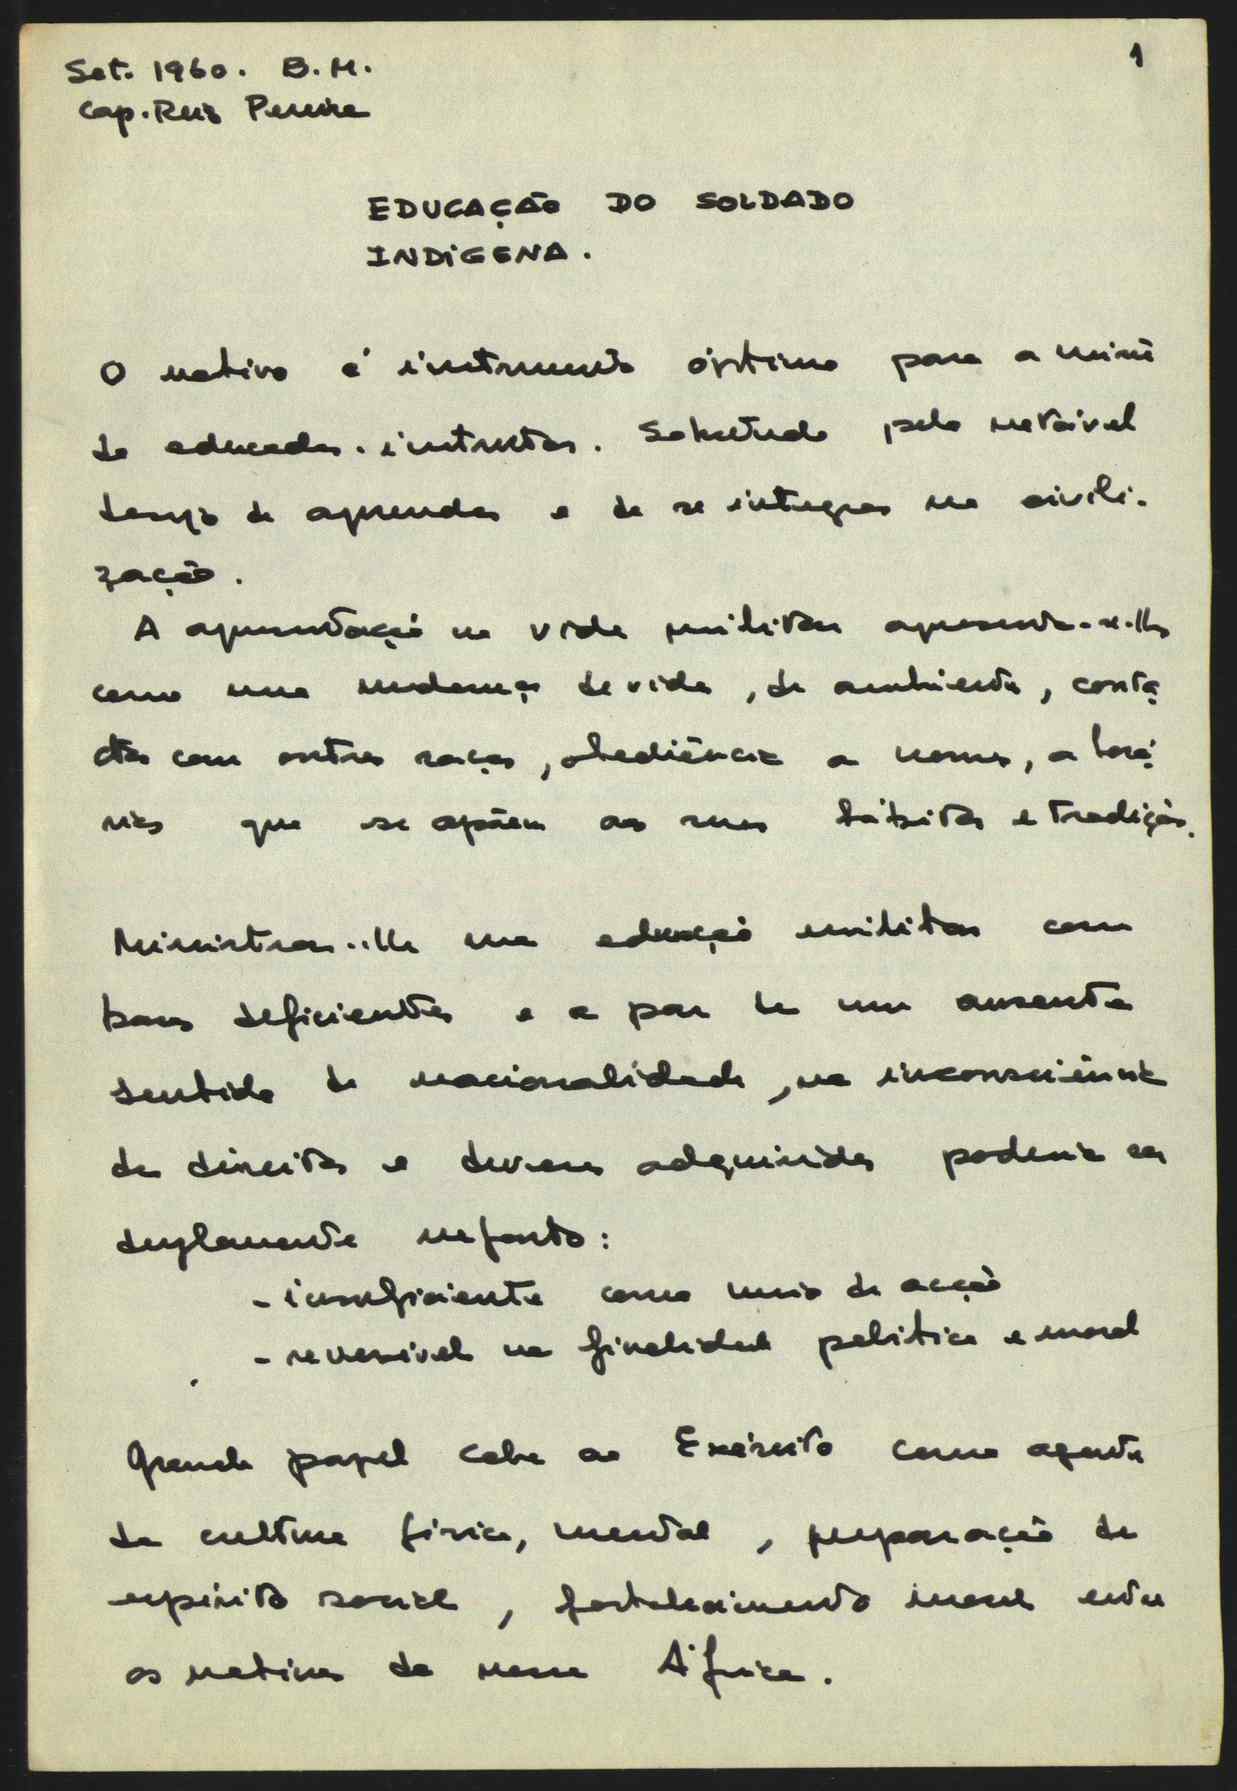 Set. 1960. B.M.
1
Cap. Ruiz Pereira
EDUCAÇÃO DO SOLDADO
INDIGENA.
O nativo é instrumento óptimo para a missã
de educador-instrutor. Sobretudo pelo notável
desejo de aprender e de se integrar na civili-
zação.
A apresentação na vida militar apresenta-se-lhe
como uma mudança de vida, de ambiente, contac
ctos com outras raças, obediência a normas, a horá
rios que se opõem aos seus hábitos e tradições.
Ministrar-lhe uma educação militar com
bases deficientes e a par de um ausente
sentido de nacionalidade, na inconsciência
de direitos e deveres adquiridos poderia ser
duplamente nefasto:
- insuficiente como meio de acção
- reversível na finalidade politica e moral
Grande papel cabe ao Exército como agente
de cultura física, mental, preparação de
espírito social, fortalecimento moral entre
os nativos da nossa África.